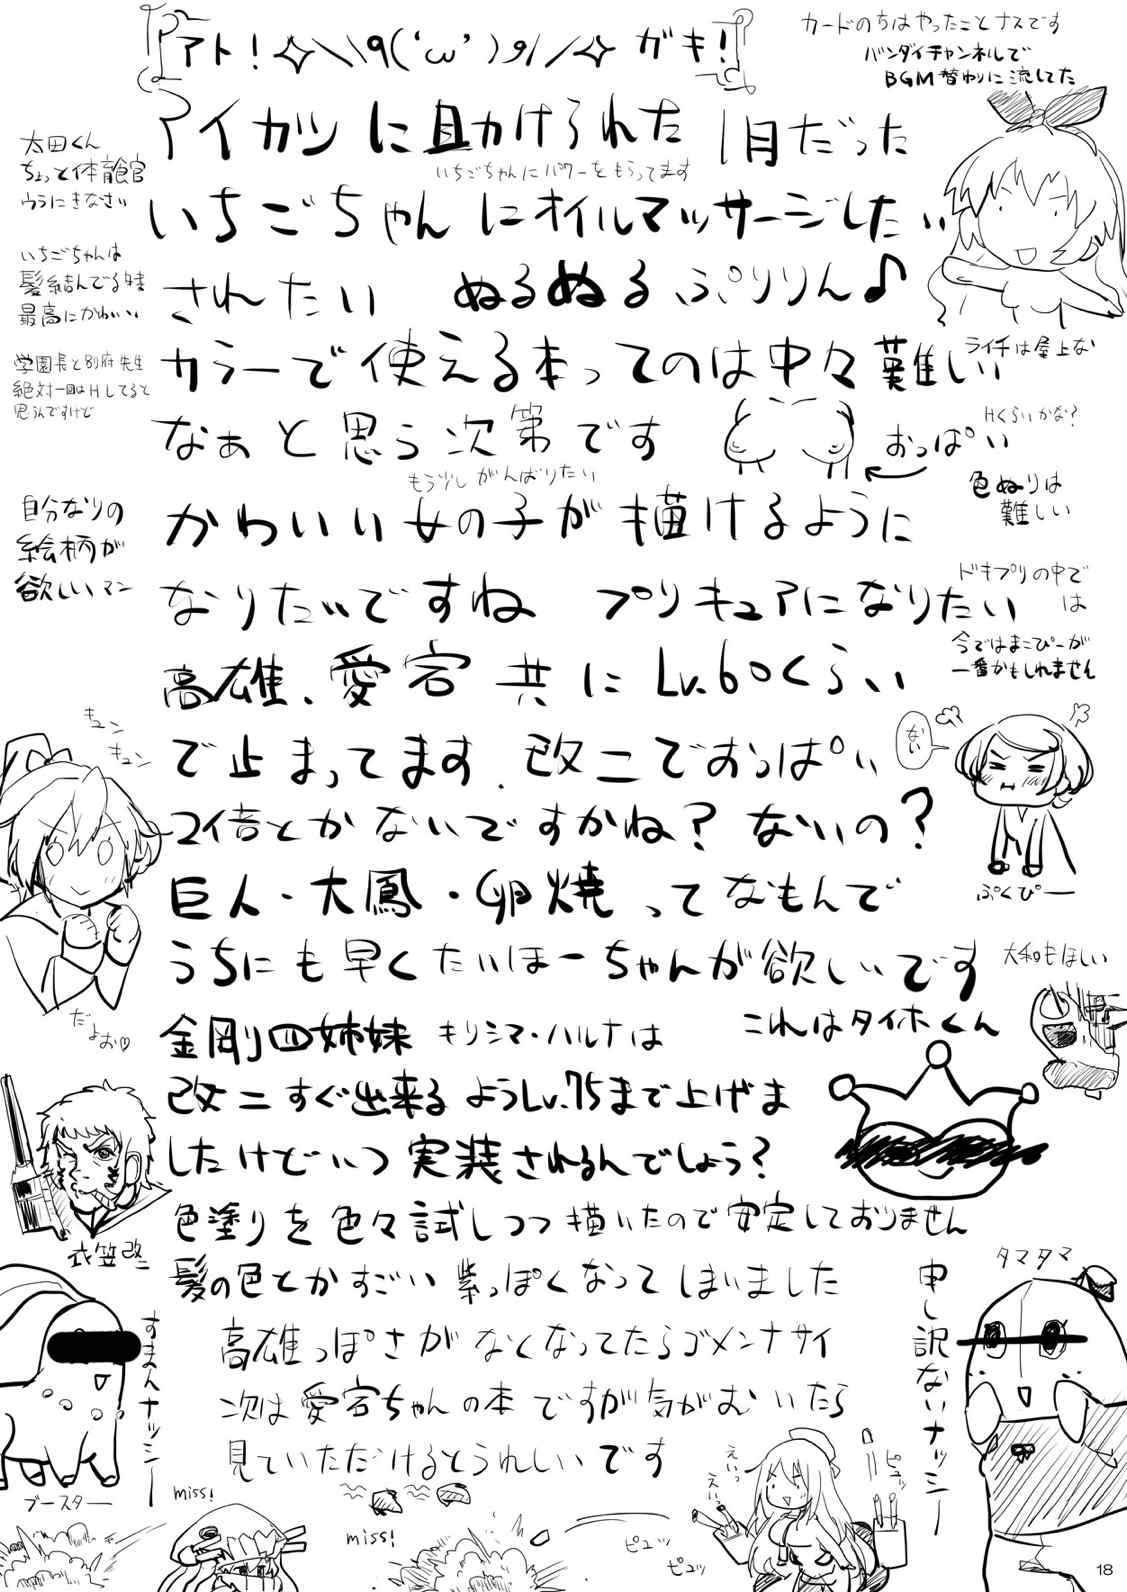 アト!✧\\٩('ω')و//✧ ガキ!
カードのちはやったことナスです
バンダイチャンネルで
BGM替わりに流してた
アイカツに助けられた1月だった
いちごちゃんにパワーをもらってます
太田くん
ちょっと体育館
ウラにきなさい
いちごちゃんにオイルマッサージしたい
いちごちゃんは
髪結んでる時
最高にかわいい
されたい ぬるぬるぷりりん♪
学園長と別府先生
絶対一回はHしてると
思うんですけど
カラーで使える本ってのは中々難しい
ライチは屋上な
なぁと思う次第です
おっぱい
Hくらいかな?
もう少しがんばりたい
色ぬりは
難しい
自分なりの
絵柄が
欲しいマン
かわいい女の子が描けるように
なりたいですね プリキュアになりたい
ドキプリの中で
は
今ではまこぴーが
一番かもしれません
高雄、愛宕共にLv.60くらい
で止まってます.改二でおっぱい
2倍とかないですかね?ないの?
ない
ぷくぴー
キュン
キュン
だよお♡
巨人・大鳳・卵焼ってなもんで
うちにも早くたいほーちゃんが欲しいです
大和もほしい
金剛四姉妹 キリシマ・ハルナは
これはタイホくん
改二すぐ出来るようLv.75まで上げま
したけどいつ実装されるんでしょう?
衣笠改二
色塗りを色々試しつつ描いたので安定しておりません
髪の色とかすごい紫っぽくなってしまいました
高雄っぽさがなくなってたらゴメンナサイ
次は愛宕ちゃんの本ですが気がむいたら
見ていただけるとうれしいです
すまんナッシー
ブースター
タマタマ
申し訳ないナッシー
miss!
miss!
えいっ
えいっ
ピュッ
ピュッ
ピュッ
18